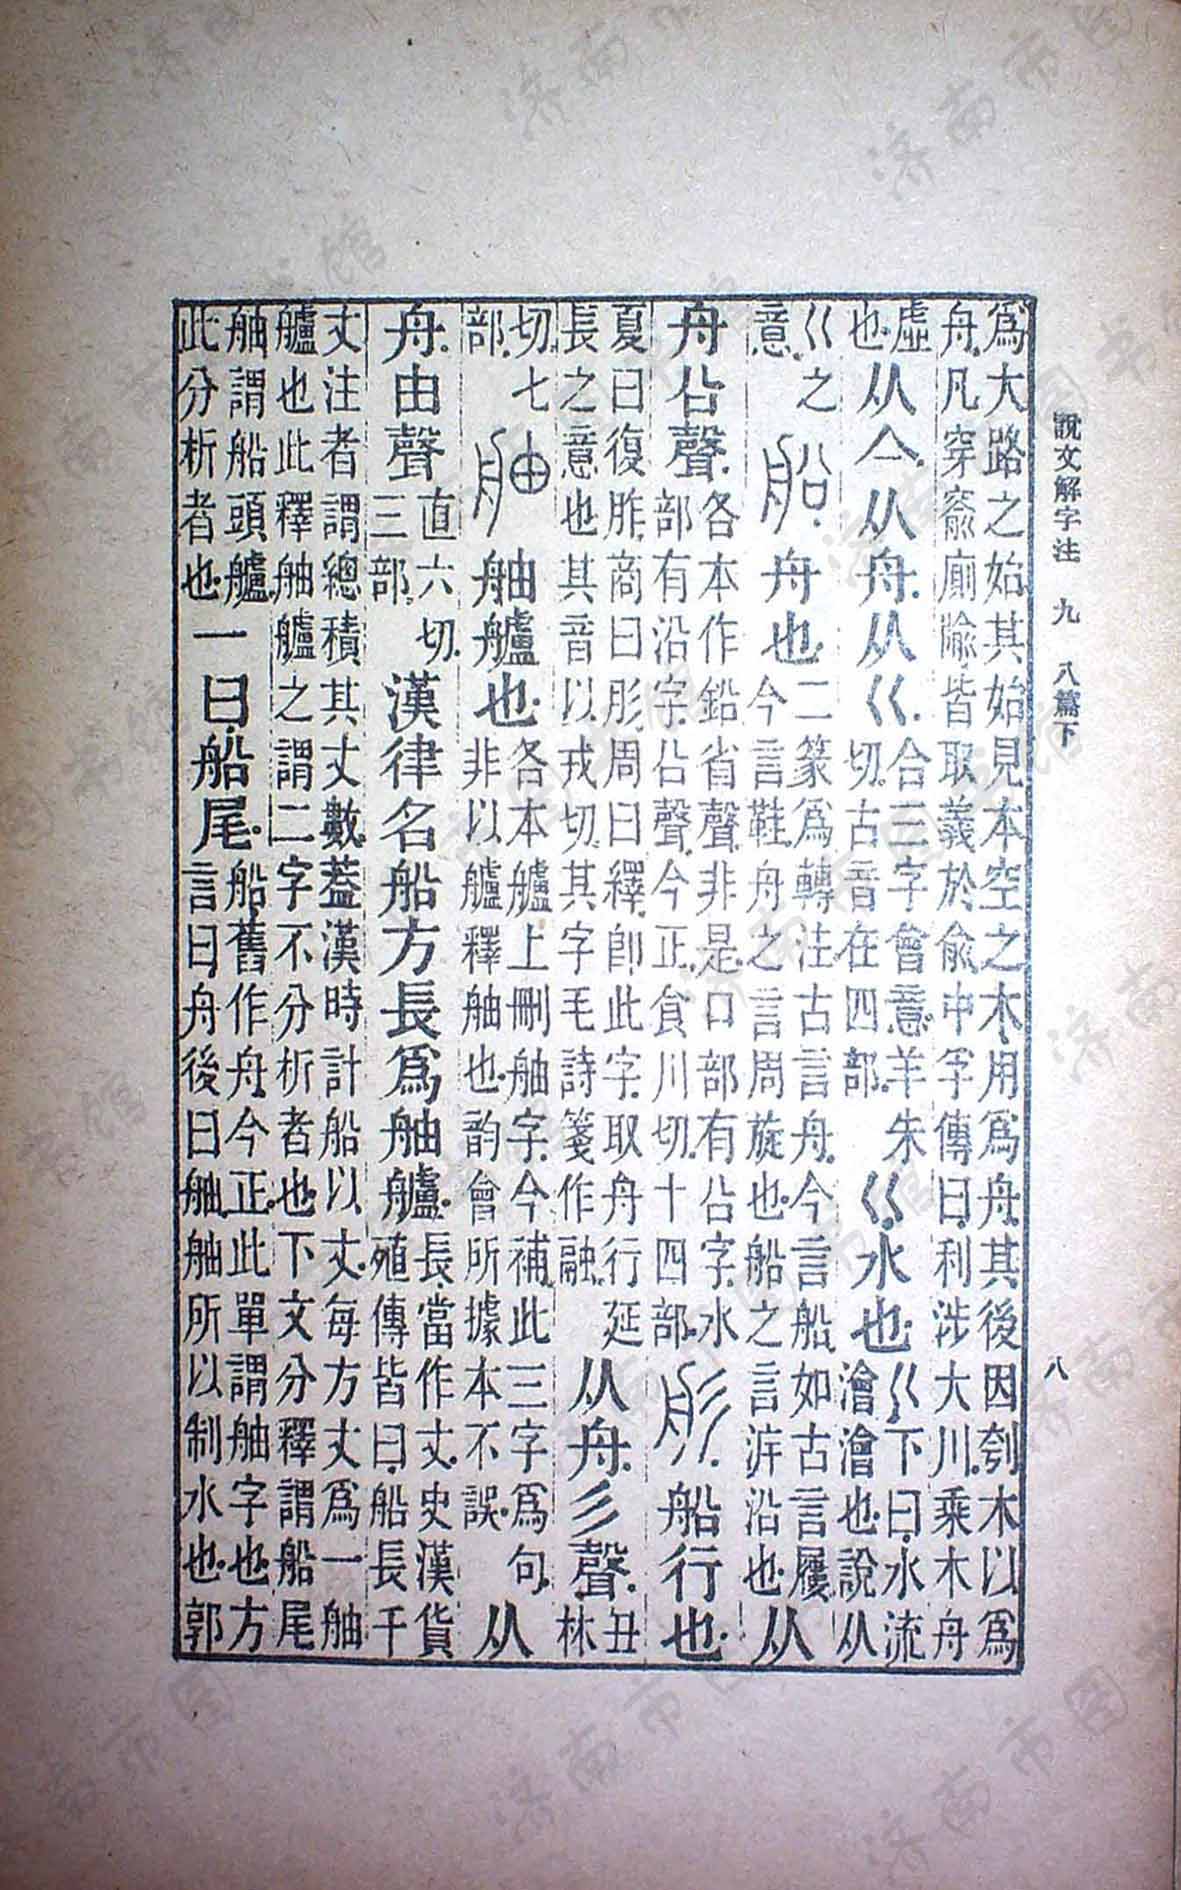 說文解字注 九 八篇下 八
爲大路之始其始見本空之木用爲舟其後因刳木以爲
舟凡穿窬廁牏皆取義於俞中孚傳曰利涉大川乘木舟
虛也从亼从舟从巜合三字會意羊朱切古音在四部巜水也巜下曰水流澮澮也說从
巜之意船舟也二篆爲轉注古言舟今言船如古言屨今言鞵舟之言周旋也船之言泝沿也从
舟㕣聲各本作鉛省聲非是口部有㕣字水部有沿字㕣聲今正食川切十四部彤船行也
夏曰復胙商曰肜周曰繹卽此字取舟行延長之意也其音以戎切其字毛詩箋作融从舟彡聲丑林
切七部舳舳艫也各本艫上刪舳字今補此三字爲句非以艫釋舳也韵會所據本不誤从
舟由聲直六切三部漢律名船方長爲舳艫長當作丈史漢貨殖傳皆曰船長千
丈注者謂總積其丈數葢漢時計船以丈每方丈爲一舳
艫也此釋舳艫之謂二字不分析者也下文分釋謂船尾
舳謂船頭艫此分析者也一曰船尾船舊作舟今正此單謂舳字也方言曰舟後曰舳舳所以制水也郭
济南市图书馆